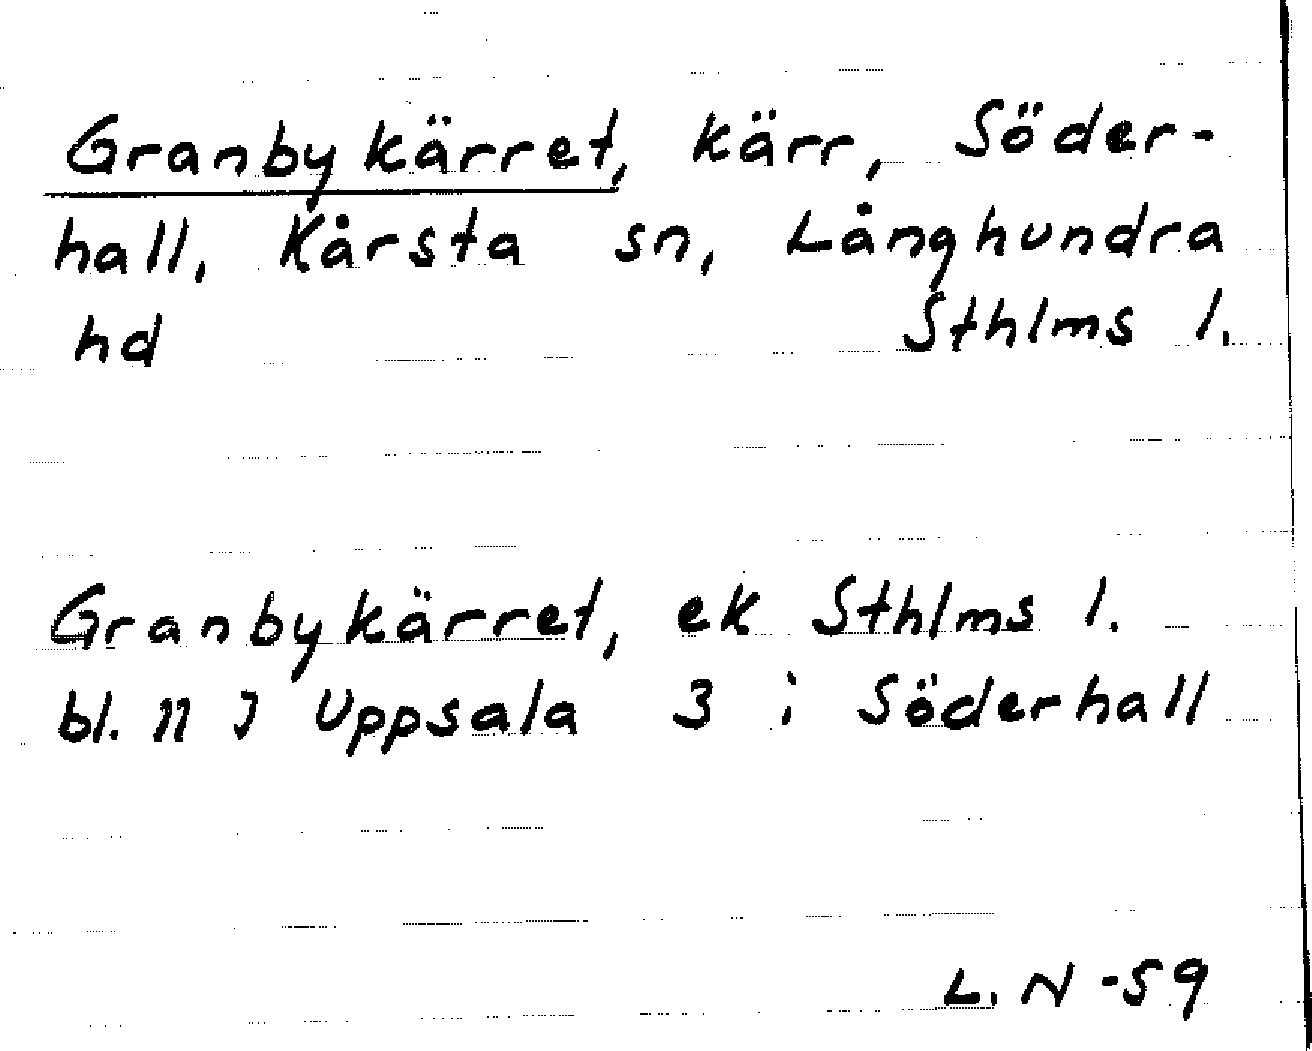 Granbykärret, kärr, Söder-
hall, Kårsta sn, Långhundra
hd Sthlms l.
Granbykärret, ek Sthlms l.
bl. 11 J Uppsala 3 i Söderhall
L. N -59